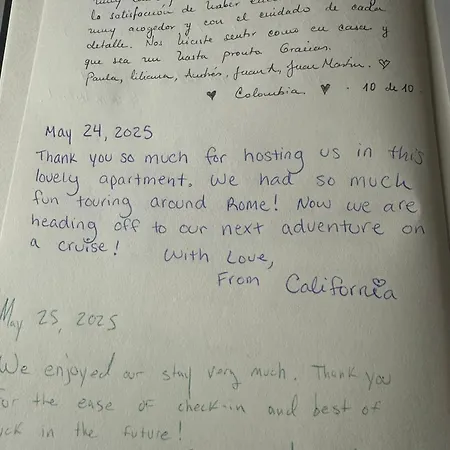 la satisfacción de haber
muy acogedor y con el cuidado de cada
detalle. Nos hiciste sentir como en casa y
que sea un hasta pronto Gracias.
Paula, Liliana, Andrés, Juan A, Juan Martin. ♡
♥ Colombia ♥ . 10 de 10.
May 24, 2025
Thank you so much for hosting us in this
lovely apartment. We had so much
fun touring around Rome! Now we are
heading off to our next adventure on
a cruise! With Love,
From California
May 25, 2025
We enjoyed our stay very much. Thank you
for the ease of check-in and best of
uck in the future!